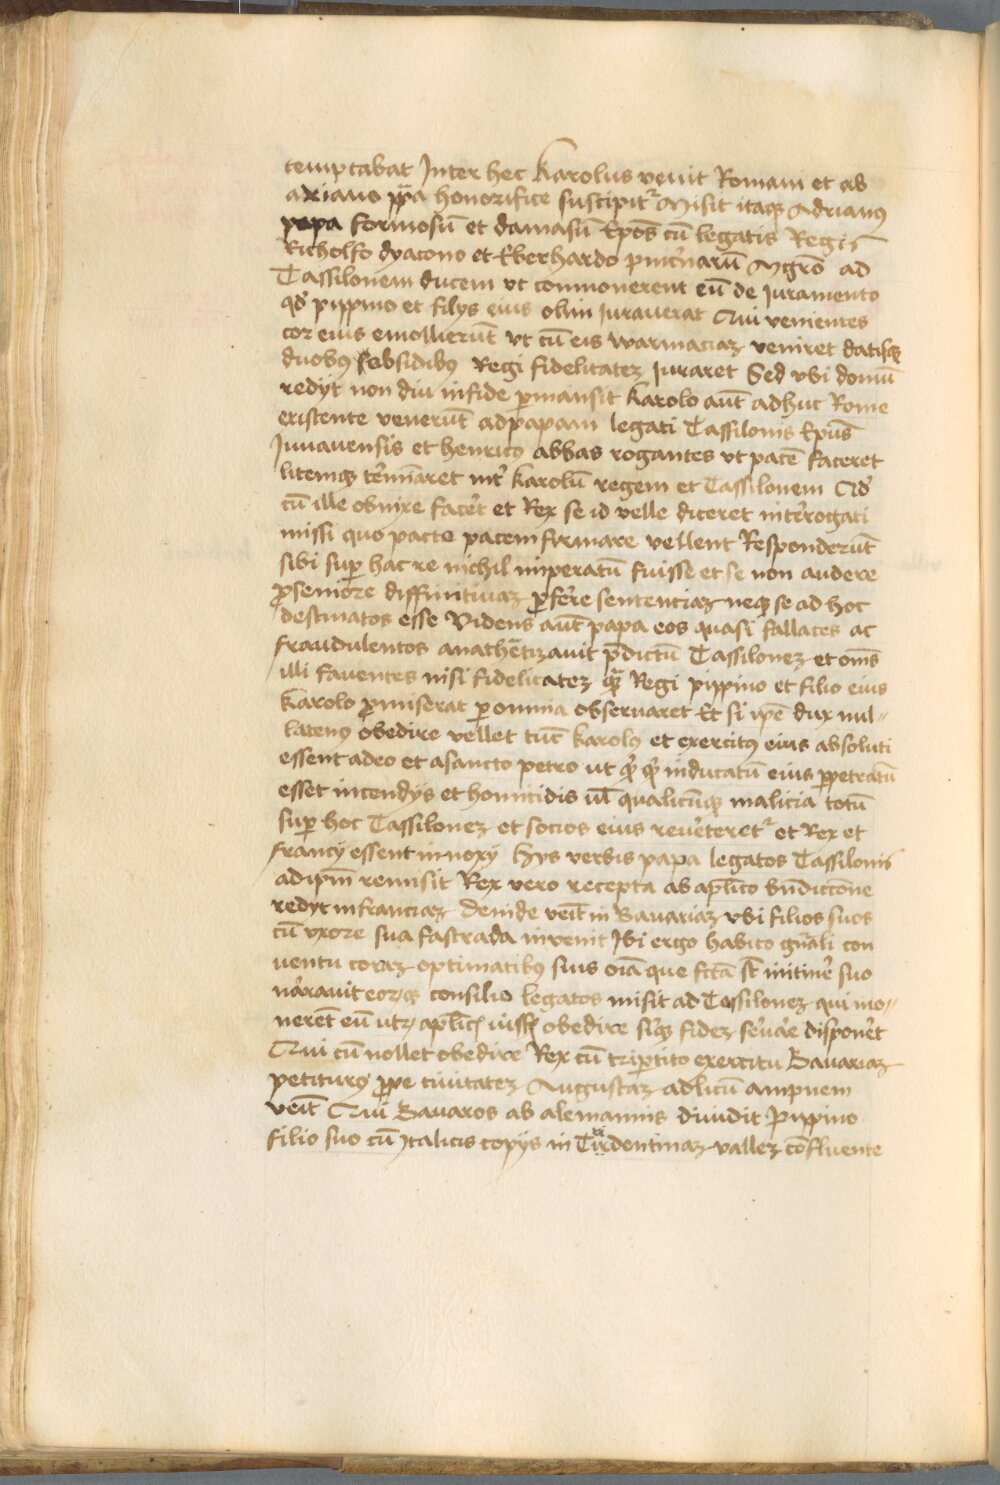 temptabat Inter hec Karolus venit Romam et ab
adriano ppa honorifice suscipit᷑ Misit itaqꝫ Adrianꝰ
papa formosū et damasū Epōs cū legatis Regis
Richolfo dyacono et Eberhardo pincͬnarū Mgrō ad
Tassilonem ducem vt commonerent eū de Juramento
qd̕ pippino et filys eius olim Jurauerat Qui venientes
cor eius emollierūt vt cū eis warmaciaꝫ veniret datisqꝫ
duobꝰ obsidibꝰ Regi fidelitateꝫ Juraret Sed vbi domū
redyt non diu infide ꝑmansit Karolo aūt adhuc Rome
existente venerūt adpapam legati Tassilonis Epūs
Juuauensis et henricꝰ abbas rogantes vt pacē faceret
litemqꝫ tͬmīaret int̕ karolū regem et Tassilonem Qd̕
cū ille obnixe facͬet et Rex se id velle diceret intͬrogati
missi quo pacto pacem firmare vellent Responderūt
sibi suꝑ hac re nichil imperatū fuisse et se non audere
ꝓseniore diffinitiuaꝫ ꝓferre sentenciaꝫ neqꝫ se ad hoc
destinatos esse Videns aūt papa eos quasi fallaces ac
fraudulentos anathētizauit p̄dictū Tassiloneꝫ et om̄s
illi fauentes nisi fidelitateꝫ quā Regi pippino et filio eius
Karolo ꝓmiserat ꝑ omnia obseruaret Et si ip̄e dux nul⸗
latenꝰ obedire vellet tūc karolꝰ et exercitꝰ eius absoluti
essent adeo et asancto petro ut q̕cq̕d inducatū eius ꝑpetratū
esset incendys et homicidis ul̄ qualicūqꝫ malicia totū
suꝑ hoc Tassiloneꝫ et socios eius reuͬteretᷣ et Rex et
francy essent innoxy Hys verbis papa legatos Tassilonis
adip̄m remisit Rex vero recepta ab aplīco bn̄diccōne
redyt infranciaꝫ Deinde veīt in Bauariaꝫ vbi filios suos
cū vxore sua fastrada invenit Ibi ergo habito gn̄ali con
uentu coraꝫ optimatibꝰ suis oīa que fctā st̄ initinͬe suo
nͬarauit eorꝫqꝫ consilio legatos misit ad Tassiloneꝫ qui mo⸗
nerēt eū utꝫ aplīcꝭ iussꝭ obedire siqꝫ fideꝫ sͬuaͬe disponͬet
Qui cū nollet obedire Rex cū tripͬtito exercitu Bauariaꝫ
petiturꝰ ꝓpe ciuitateꝫ Augustaꝫ adlicū ampnem
veīt Qui Bauaros ab alemannis diuidit Pippino
filio suo cū Italicis copys in Tridentinaꝫ valleꝫ cōfluente